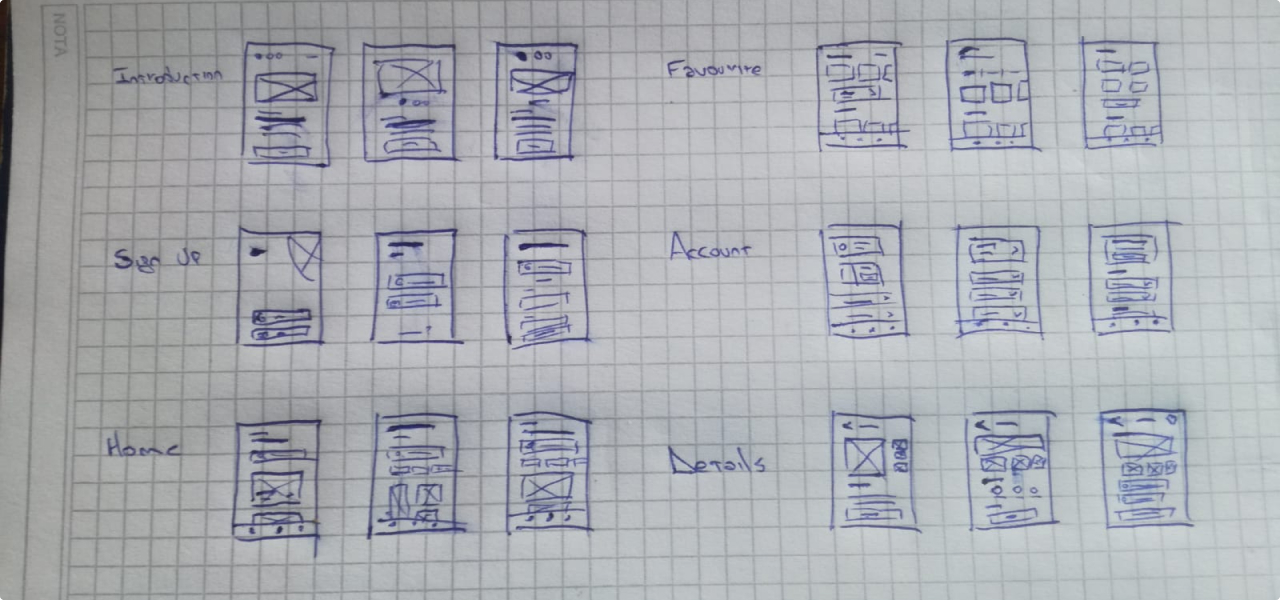 NOTA
Introduction
Favourite
Sign Up
Account
Home
Details